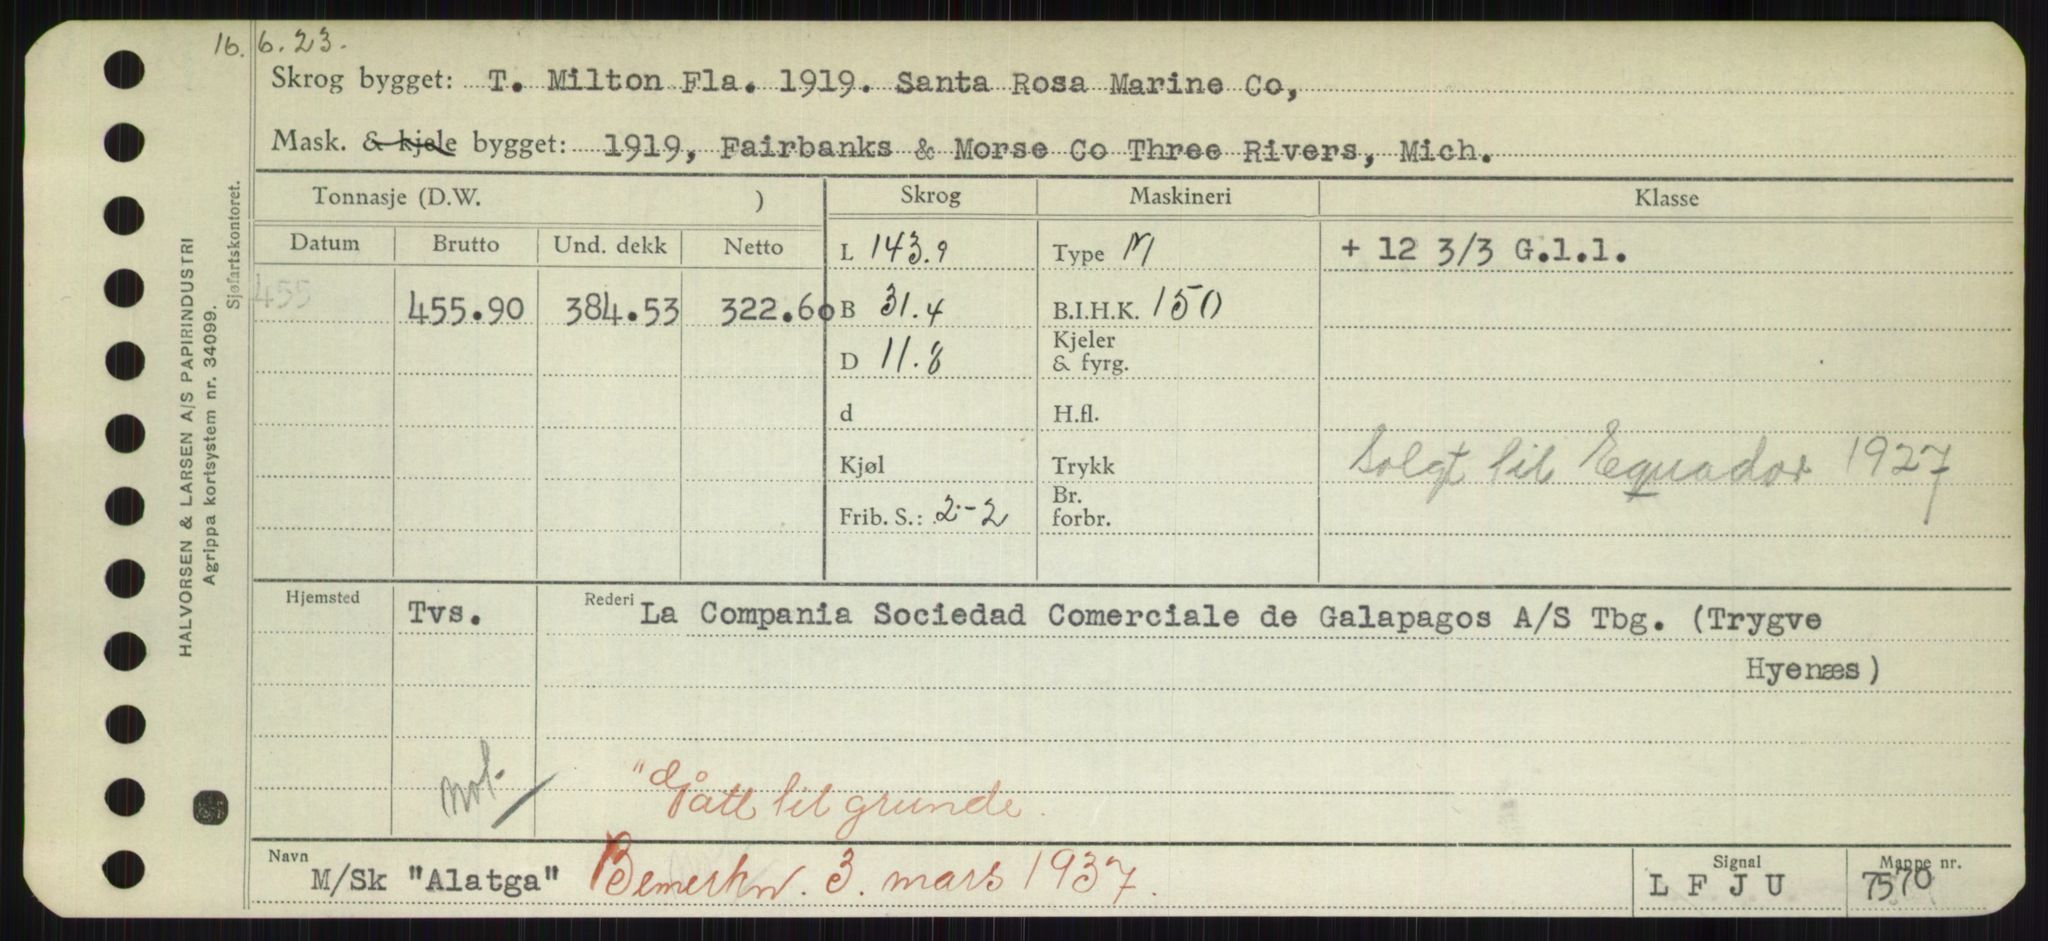 16. 6.23.
Skrog bygget: T. Milton Fla. 1919. Santa Rosa Marine Co,
Mask. & kjele bygget: 1919, Fairbanks & Morse Co Three Rivers, Mich.
Tonnasje (D.W. ) Skrog Maskineri Klasse
Datum Brutto Und. dekk Netto L 143.9 Type M + 12 3/3 G.l.l.
455 455.90 384.53 322.60 B 31.4 B.I.H.K. 150
D 11.8 Kjeler & fyrg.
d H.fl.
Kjøl Trykk Solgt til Equador 1927
Frib. S.: 2-2 Br. forbr.
Hjemsted Tvs. Rederi La Compania Sociedad Comerciale de Galapagos A/S Tbg. (Trygve
Hyenæs)
not.
"Gått til grunde.
Navn M/Sk "Alatga" Bemerkn. 3. mars 1937. Signal L F J U Mappe nr. 7570
HALVORSEN & LARSEN A/S PAPIRINDUSTRI
Agrippa kortsystem nr. 34099.
Sjøfartskontoret.